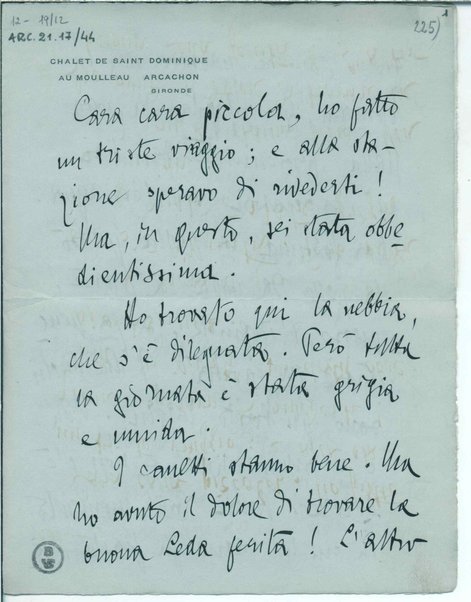 12-19/12
ARC.21.17/44
225)
CHALET DE SAINT DOMINIQUE
AU MOULLEAU ARCACHON
GIRONDE
Cara cara piccola, ho fatto
un triste viaggio; e alla sta-
zione speravo di rivederti!
Ma, in questo, sei stata obbe-
dientissima.
Ho trovato qui la nebbia,
che s'è dileguata. Però tutta
la giornata è stata grigia
e umida.
I canetti stanno bene. Ma
ho avuto il dolore di trovare la
buona Leda ferita! L'altro